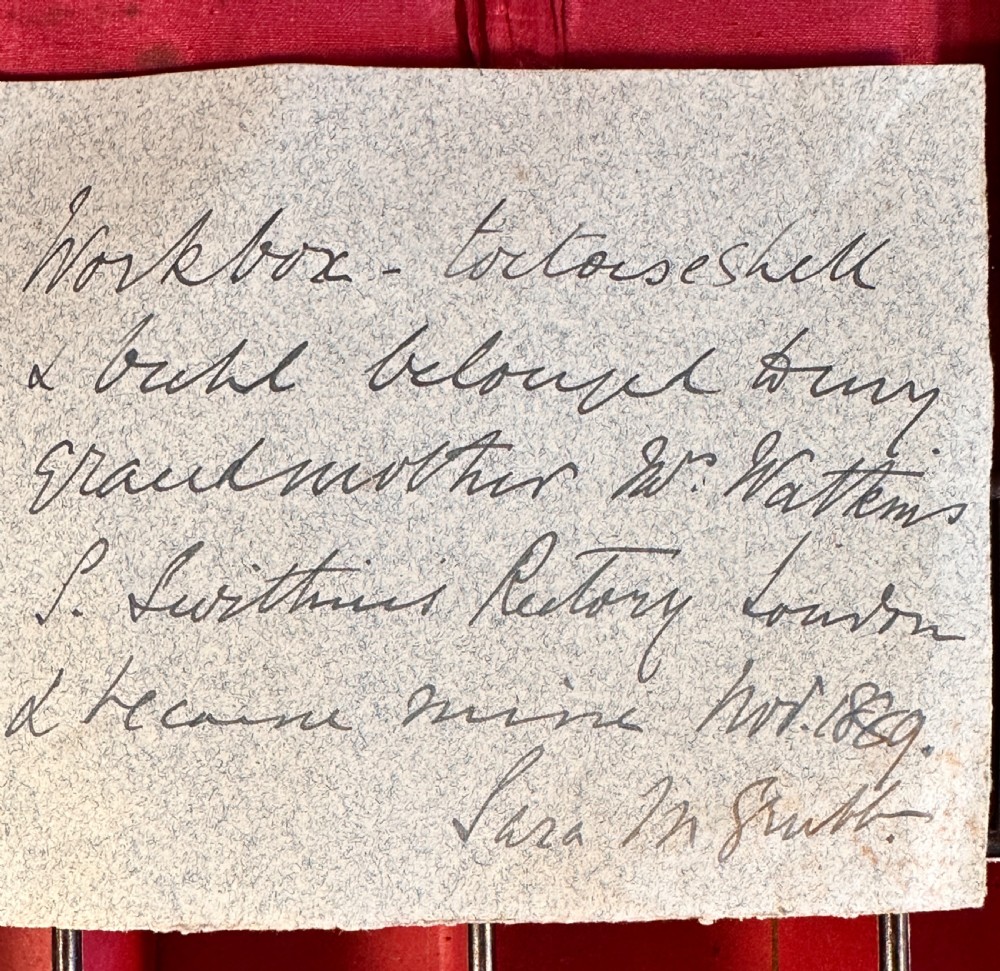 Workbox - tortoiseshell
& buhl belonged to my
grandmother Mrs. Watkins
S. Swithin's Rectory London
& became mine Nov. 1889.
Sara M Grubb.